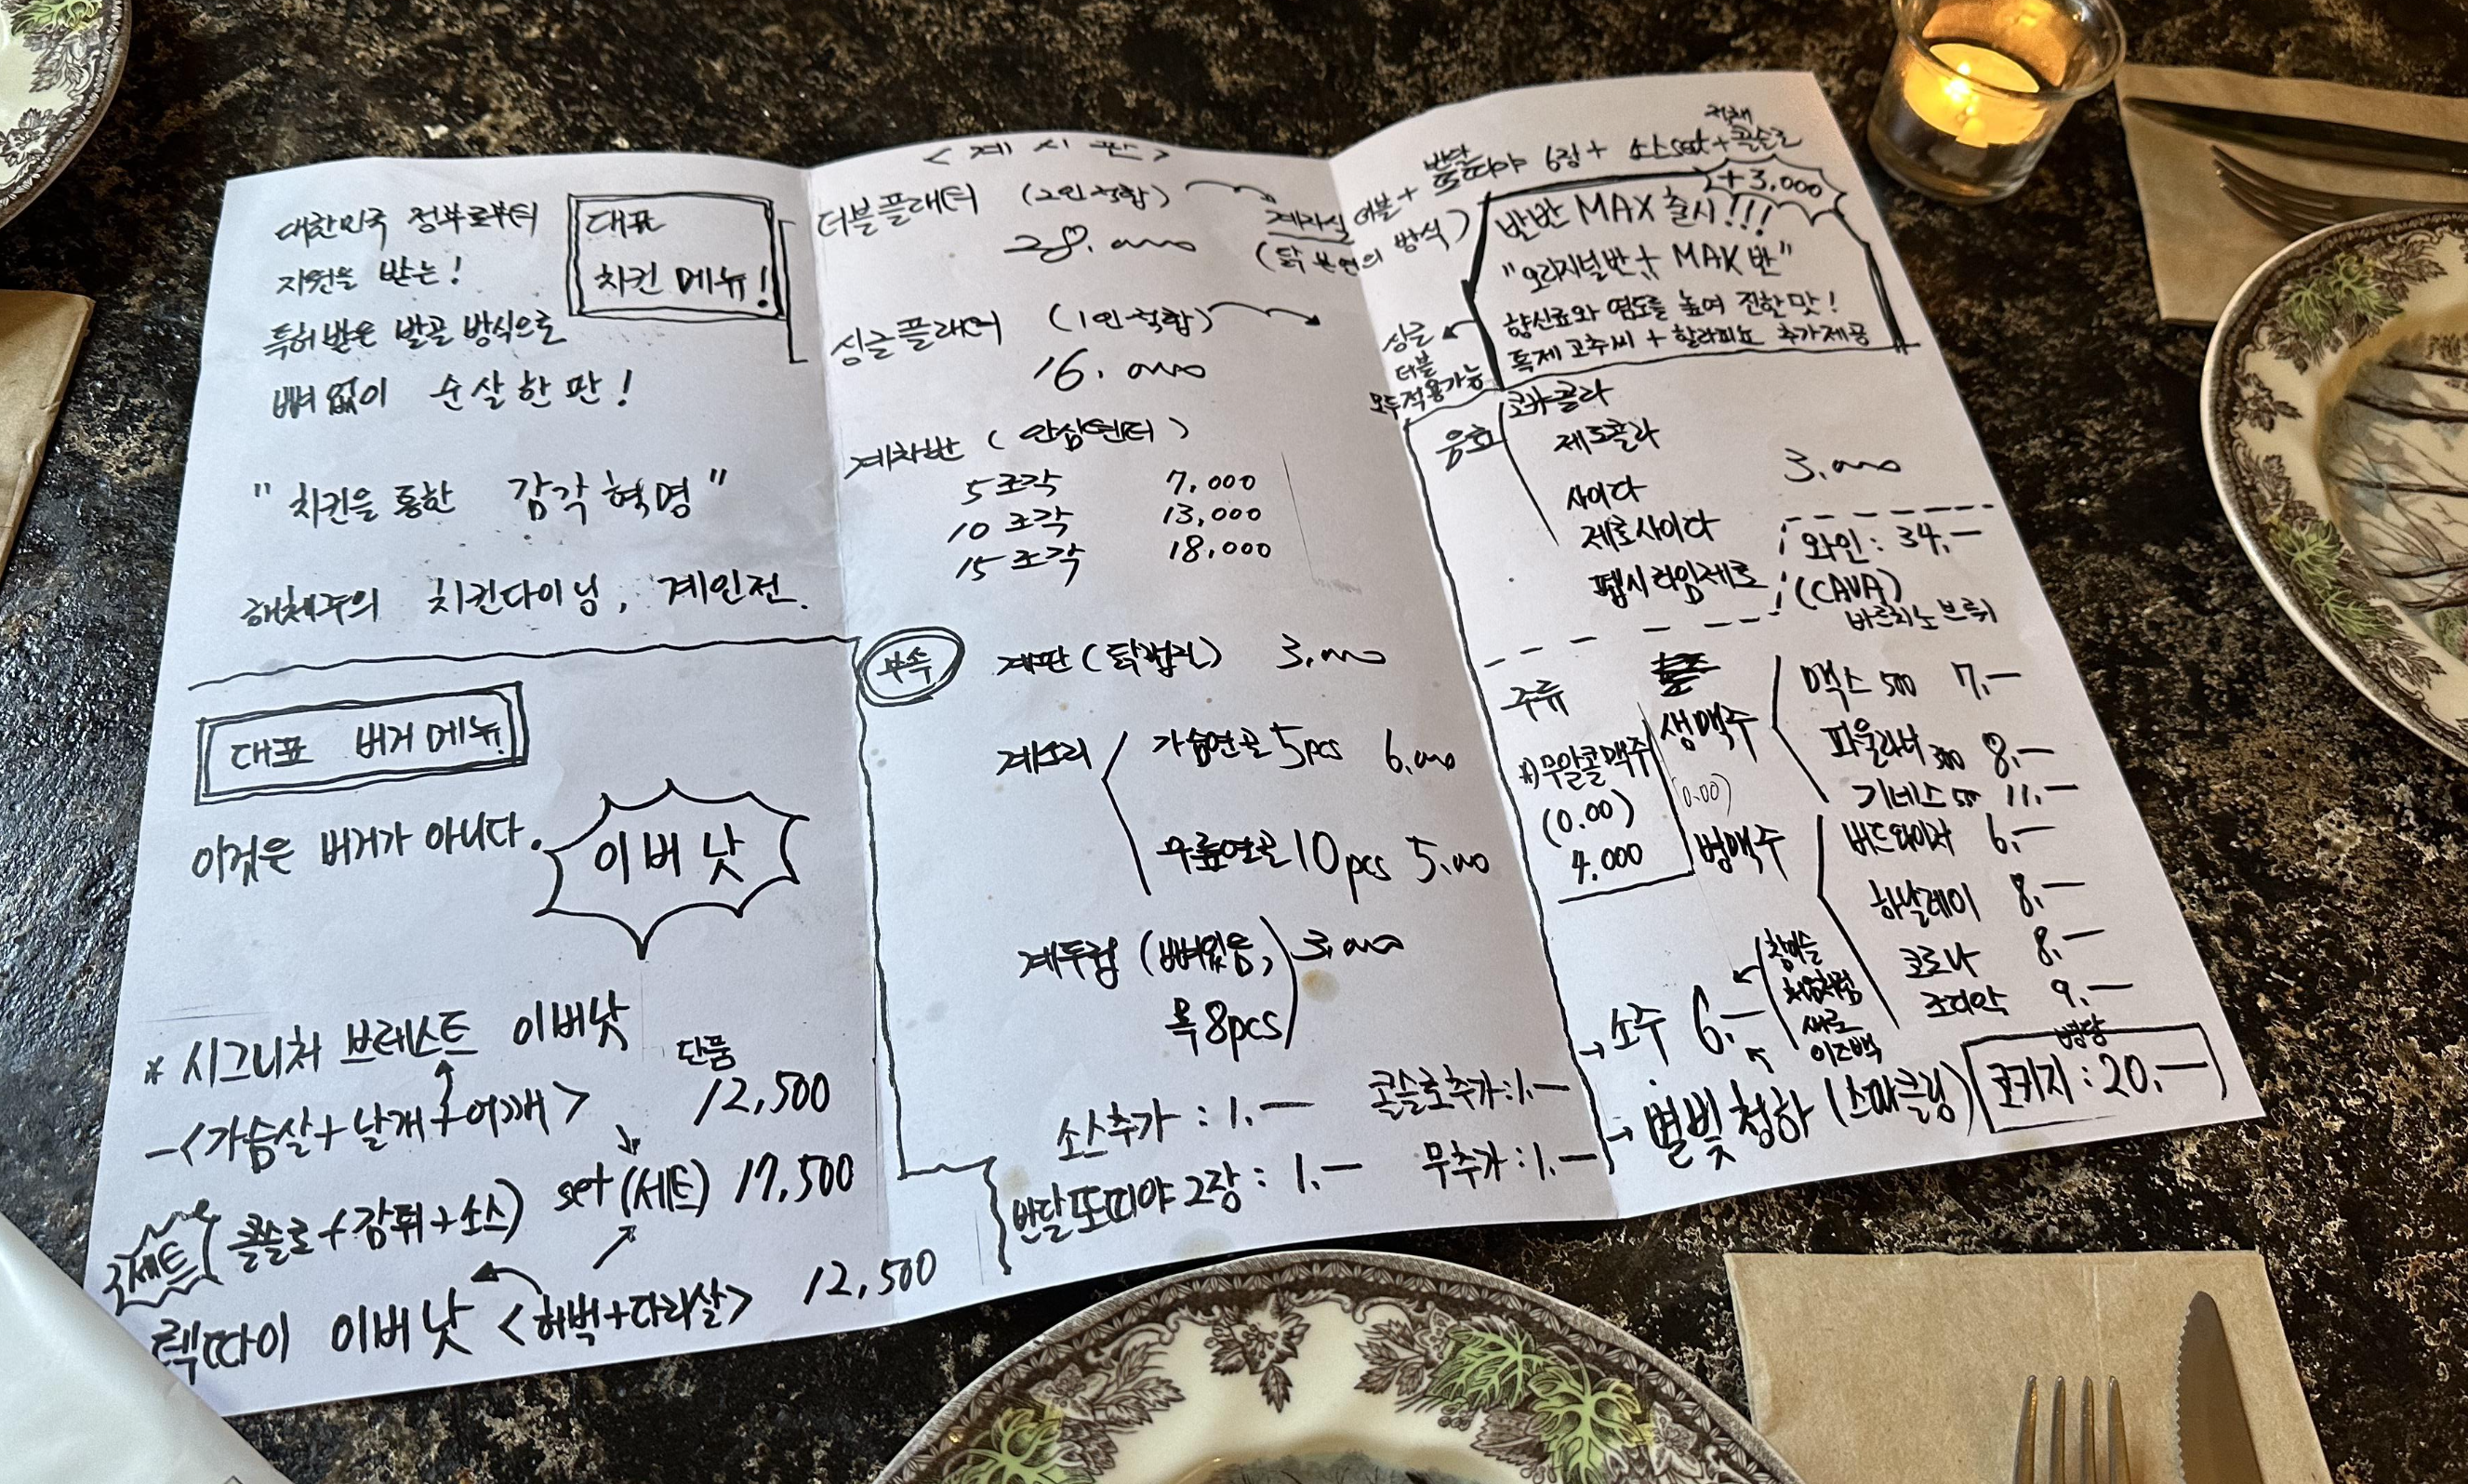 대한민국 정부로부터
지원을 받는!
특허 받은 발골 방식으로
뼈 없이 순살 한 판!
대표
치킨 메뉴!
"치킨을 통한 감각 혁명"
해체주의 치킨다이닝, 계인전.
대표 버거 메뉴!
이것은 버거가 아니다.
이버낫
* 시그니처 브레스트 이버낫
단품
-<가슴살+날개+어깨> 12,500
세트
콜슬로+감튀+소스) set (세트) 17,500
렉따이 이버낫 <허벅+다리살> 12,500
<계시판>
더블플래터 (2인 적합)
28.000
싱글플래터 (1인 적합)
16.000
계차반 (안심텐더)
5조각 7,000
10조각 13,000
15조각 18,000
부속
계판 (닭껍진) 3.000
계소리
가슴연골 5pcs 6.000
무릎연골 10pcs 5.000
계두럽 (뼈없음, 3.000
목 8pcs)
소스추가 : 1.—
콜슬로추가 : 1.—
반달또띠야 2장 : 1.—
무추가 : 1.—
더블+ 반달
또띠야 6장 + 소스set + 콜슬로
(닭 본연의 방식)
+3,000
반반 MAX 출시!!!
"오리지널반 + MAX 반"
향신료와 염도를 높여 진한맛!
특제 고추씨 + 할라피뇨 추가제공
싱글
더블
모두적용가능
음료
코카콜라
제로콜라
사이다
제로사이다
펩시라임제로
3.000
와인 : 34.—
(CAVA)
바르치노 브뤼
주류
*)무알콜맥주
(0.00)
4.000
생맥주
(0.00)
맥스 500 7.—
파울라너 300 8.—
기네스 11.—
병맥주
버드와이저 6.—
하날레이 8.—
코로나 8.—
코젤다크 9.—
→ 소주 6.—
참이슬
처음처럼
새로
이즈백
→ 별빛청하 (스파클링)
병당
코키지 : 20.—